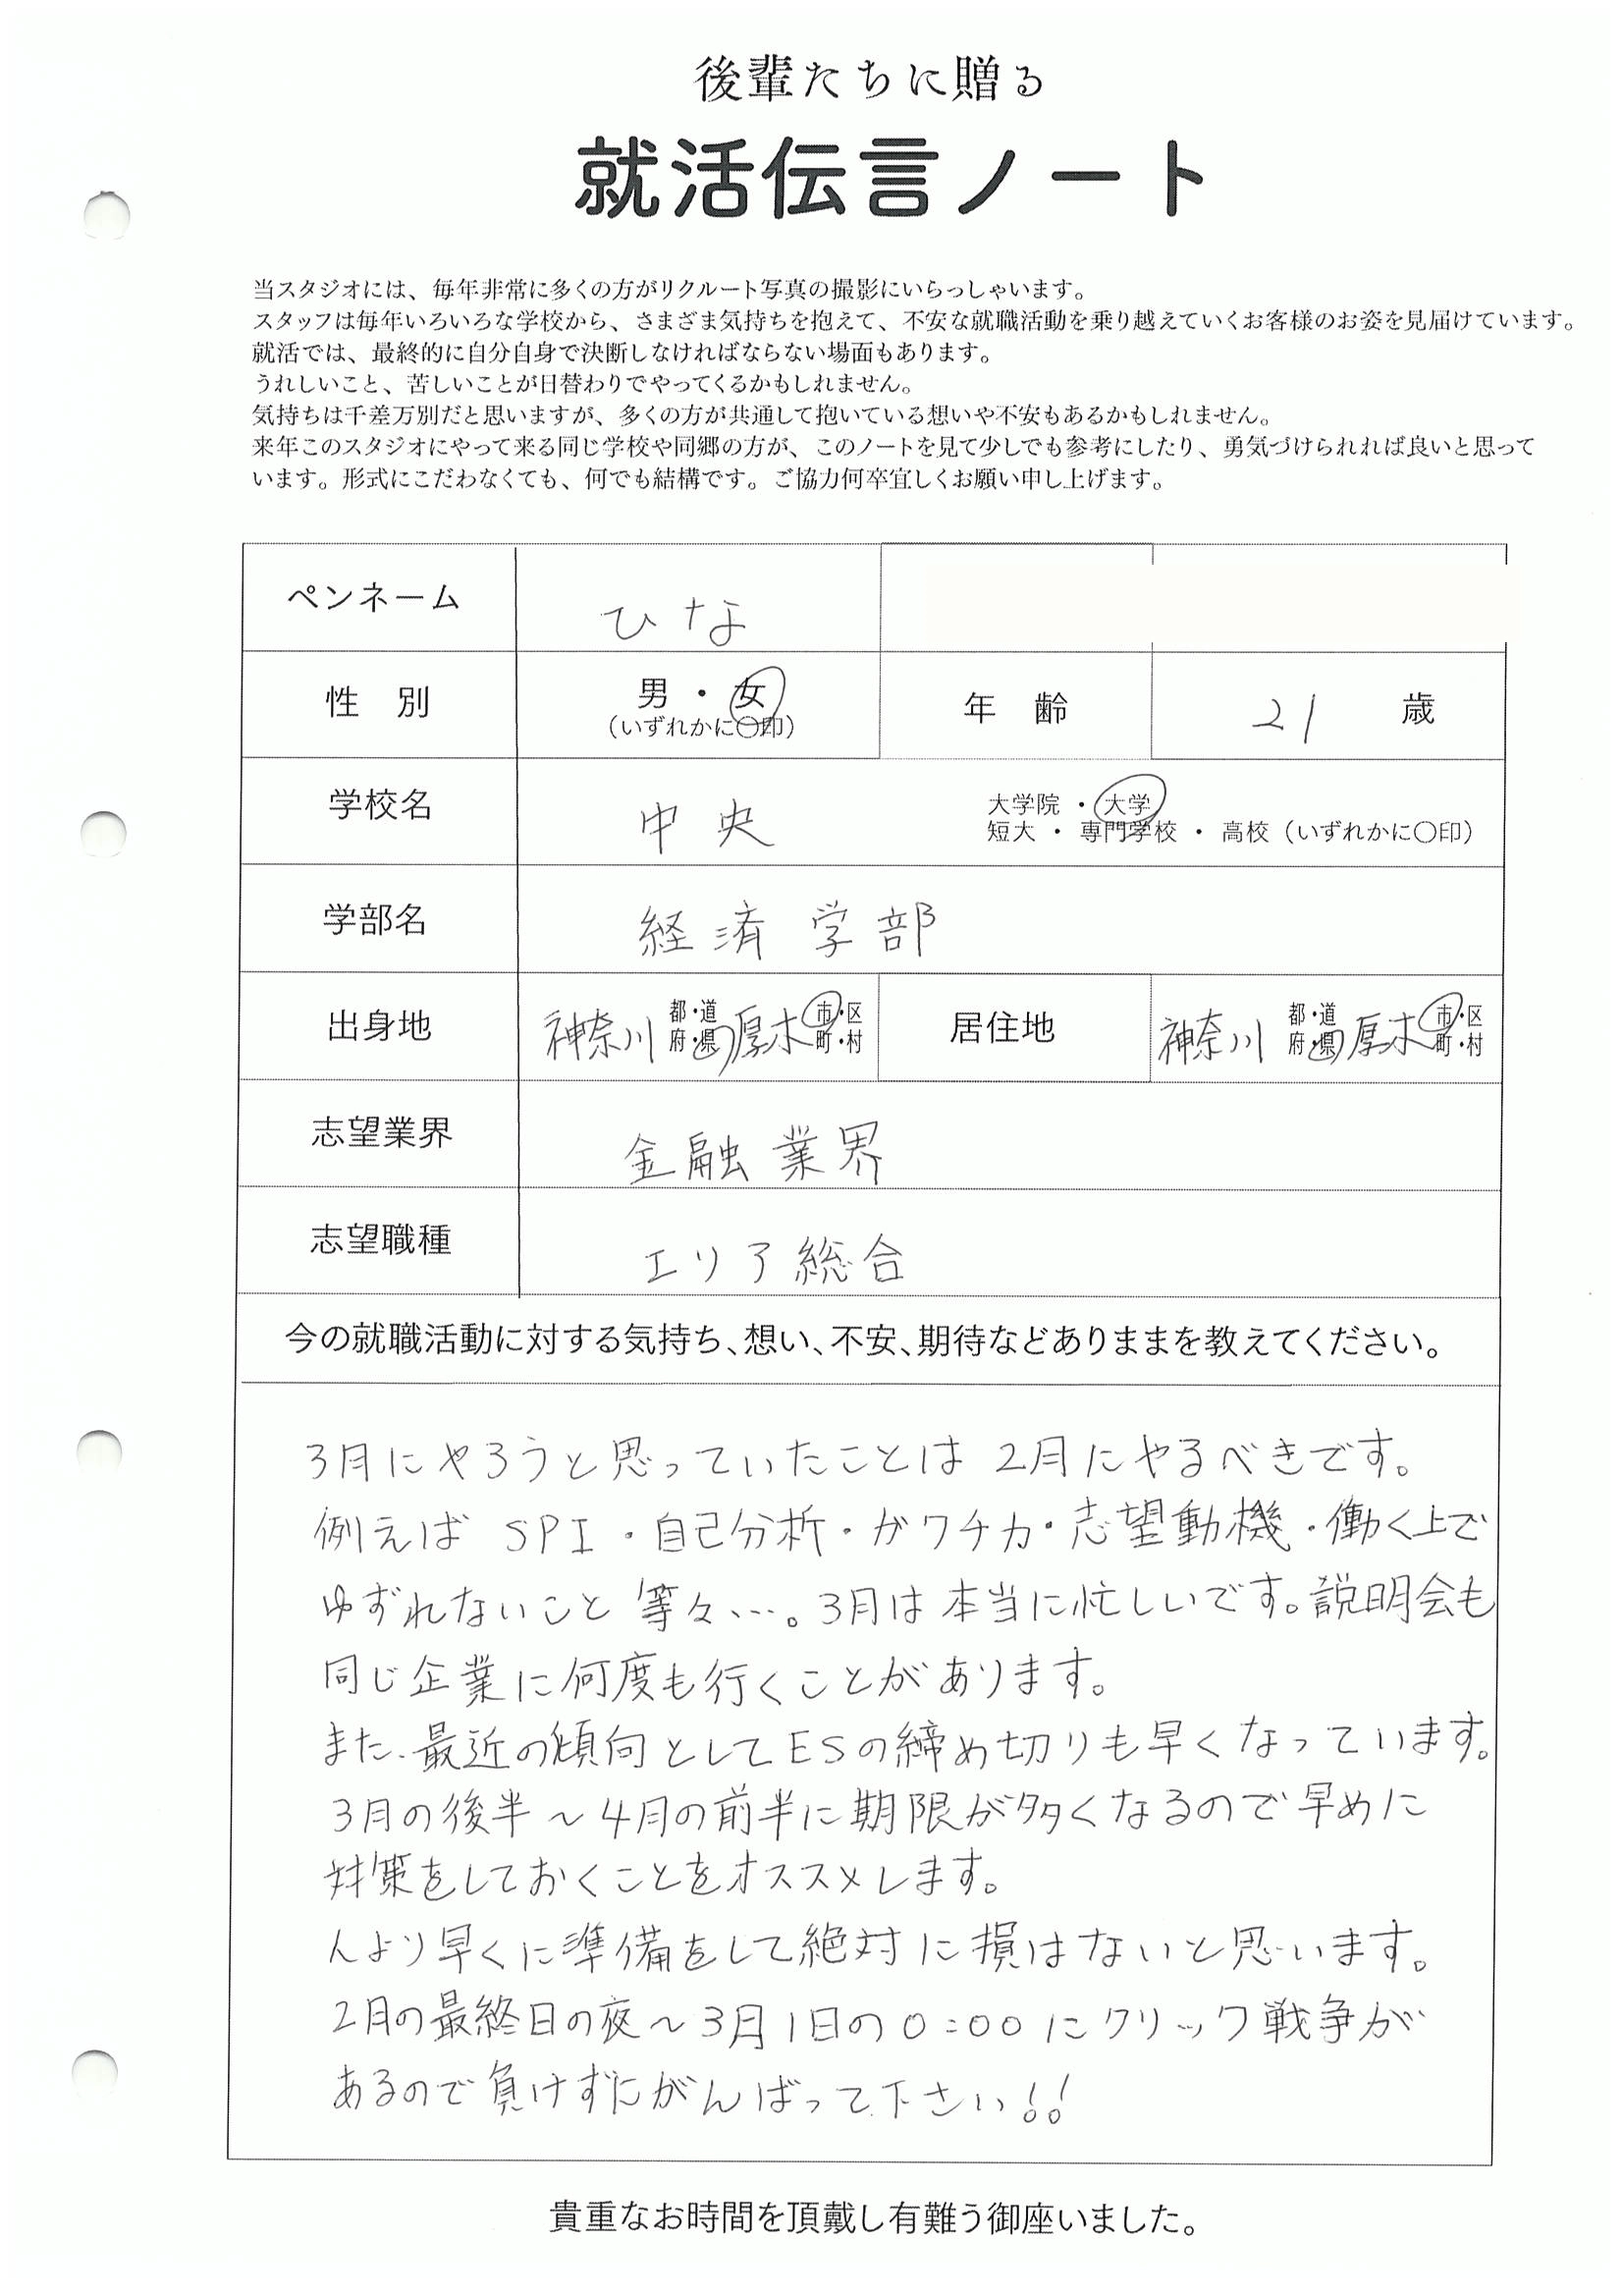 後輩たちに贈る
就活伝言ノート
当スタジオには、毎年非常に多くの方がリクルート写真の撮影にいらっしゃいます。
スタッフは毎年いろいろな学校から、さまざま気持ちを抱えて、不安な就職活動を乗り越えていくお客様のお姿を見届けています。
就活では、最終的に自分自身で決断しなければならない場面もあります。
うれしいこと、苦しいことが日替わりでやってくるかもしれません。
気持ちは千差万別だと思いますが、多くの方が共通して抱いている想いや不安もあるかもしれません。
来年このスタジオにやって来る同じ学校や同郷の方が、このノートを見て少しでも参考にしたり、勇気づけられれば良いと思って
います。形式にこだわなくても、何でも結構です。ご協力何卒宜しくお願い申し上げます。
ペンネーム ひな
性 別 男 ・ 女 (いずれかに〇印) 年 齢 21 歳
学校名 中央 大学院 ・ 大学
短大 ・ 専門学校 ・ 高校 (いずれかに〇印)
学部名 経済学部
出身地 神奈川 都・道府・県 厚木 市・区町・村 居住地 神奈川 都・道府・県 厚木 市・区町・村
志望業界 金融業界
志望職種 エリア総合
今の就職活動に対する気持ち、想い、不安、期待などありままを教えてください。
3月にやろうと思っていたことは2月にやるべきです。
例えばSPI・自己分析・ガクチカ・志望動機・働く上で
ゆずれないこと等々…。3月は本当に忙しいです。説明会も
同じ企業に何度も行くことがあります。
また、最近の傾向としてESの締め切りも早くなっています。
3月の後半〜4月の前半に期限が多くなるので早めに
対策をしておくことをオススメします。
人より早くに準備をして絶対に損はないと思います。
2月の最終日の夜〜3月1日の0:00にクリック戦争が
あるので負けずにがんばって下さい!!
貴重なお時間を頂戴し有難う御座いました。